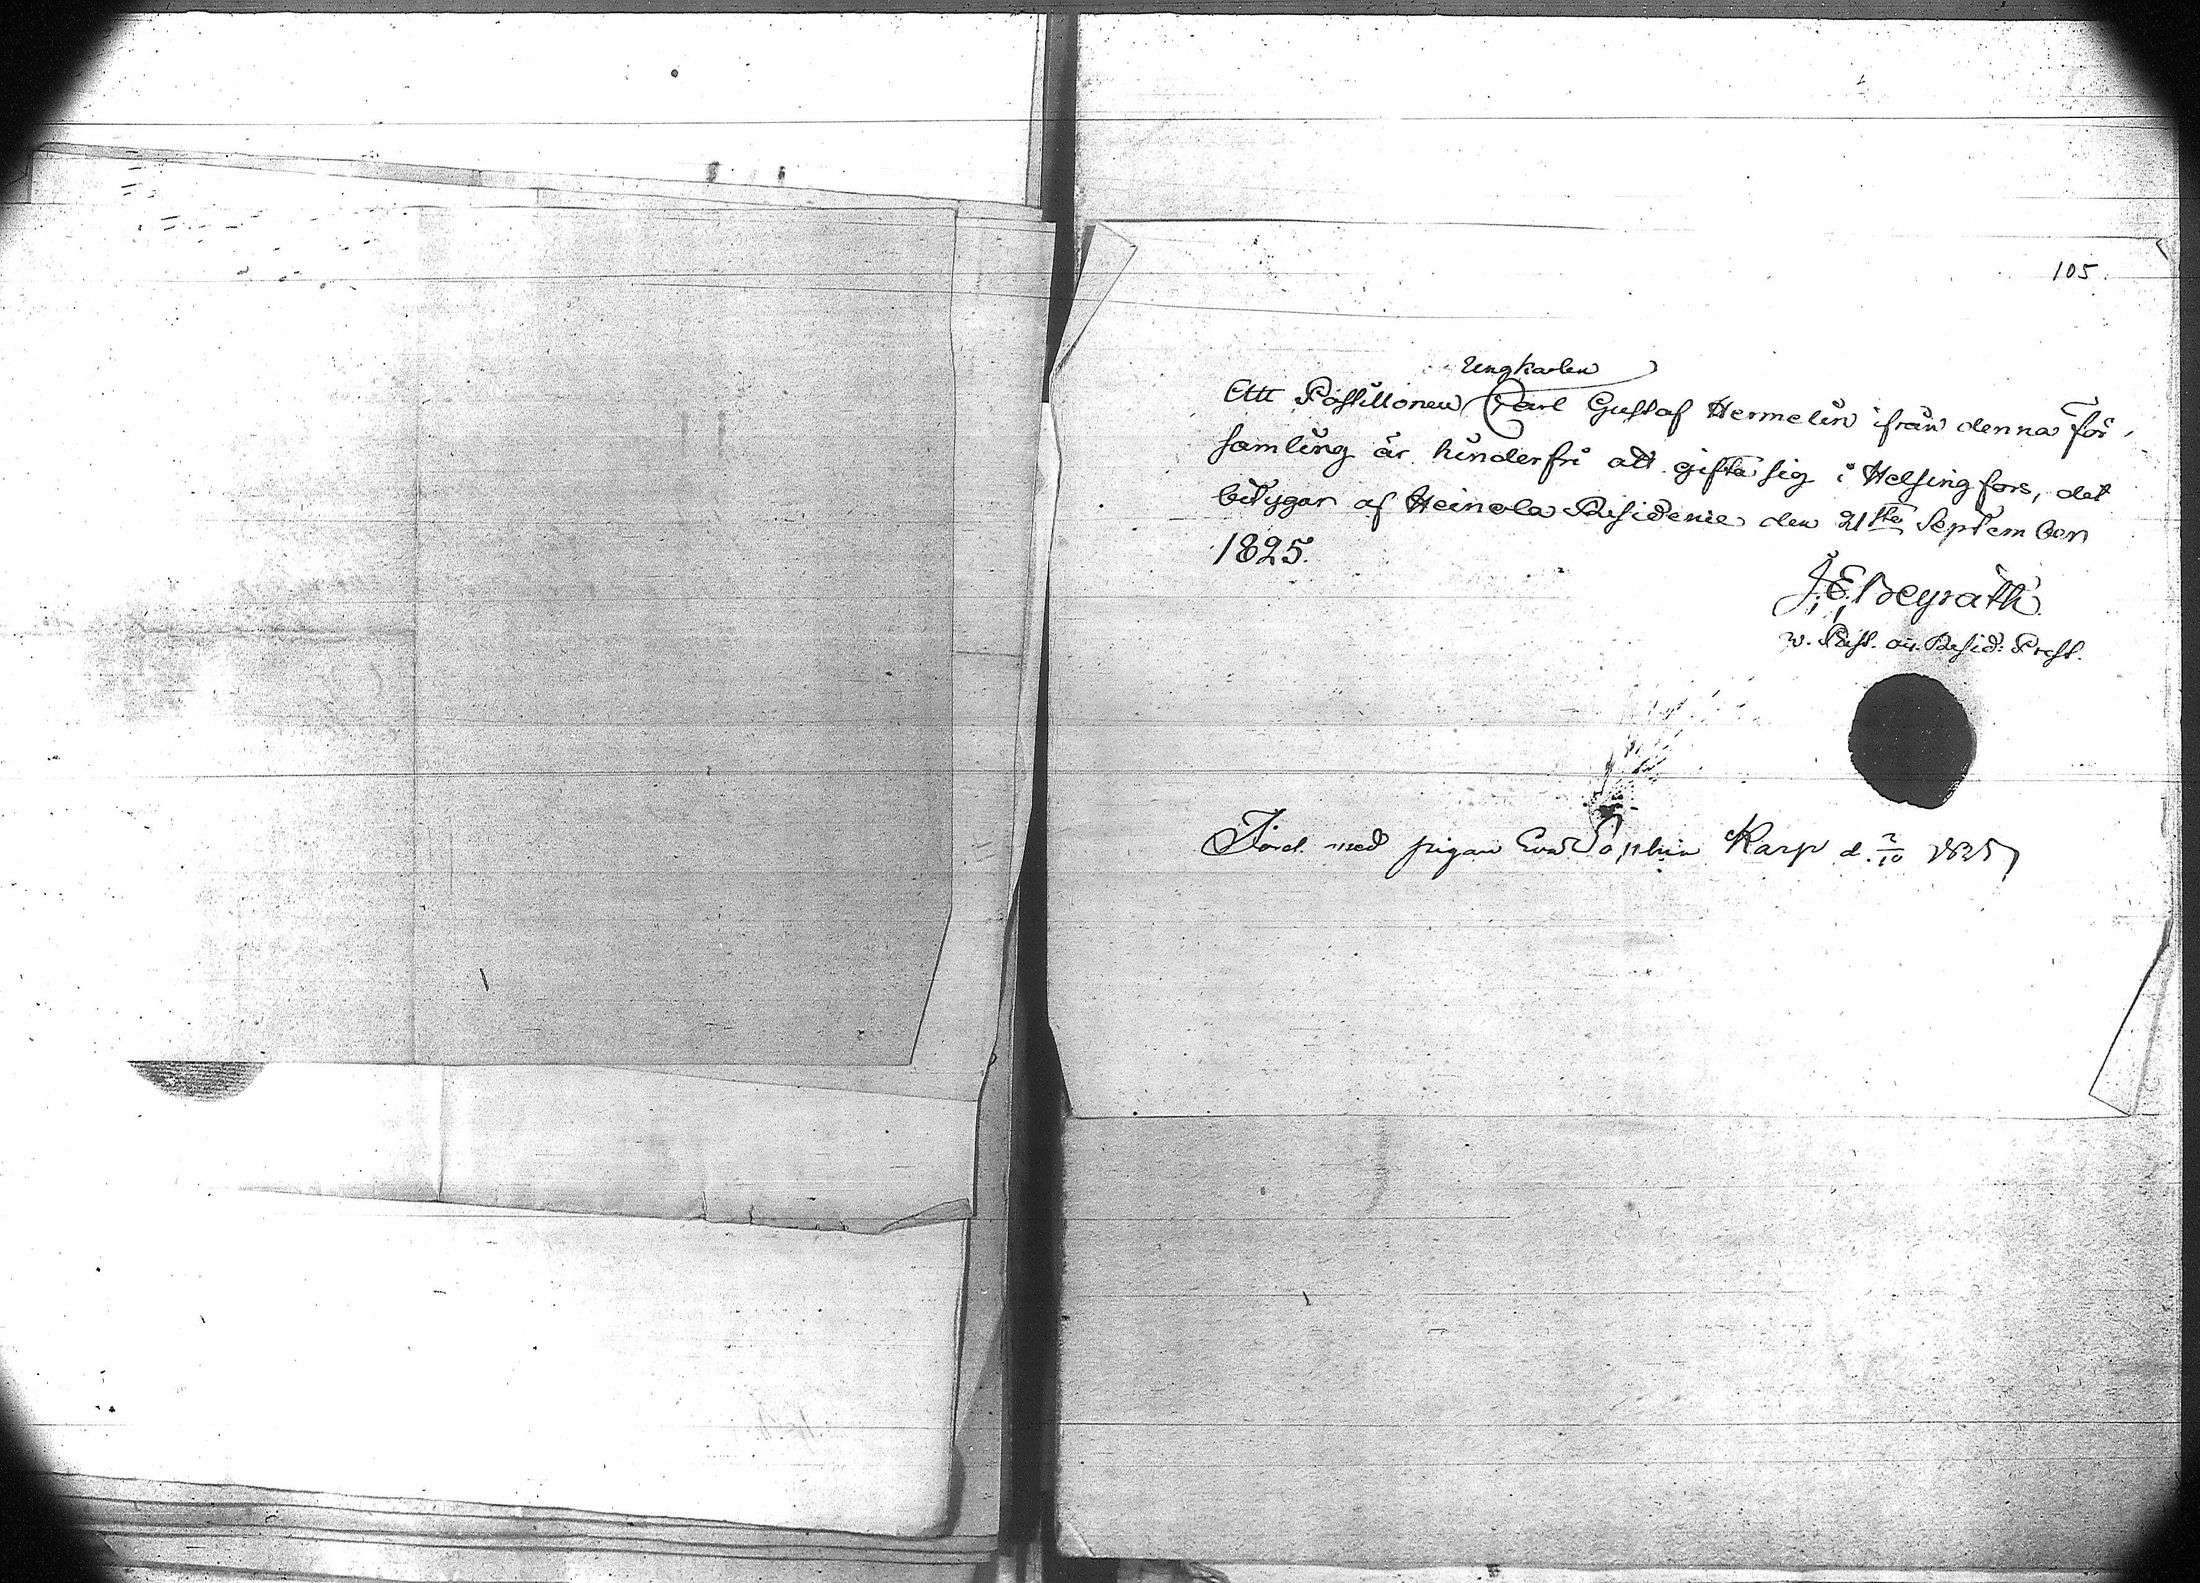 105.
Ungkarlen
Att Postillonen Carl Gustaf Hermelin ifrån denna För-
samling är hinderfri att gifta sig i Helsingfors, det
betygar af Heinola Residence den 21sta September
1825.
J. E. Beyrath
v. Past. o. Resid: Prest.
med pigan Eva Sophia Karp d. 2/10 1825